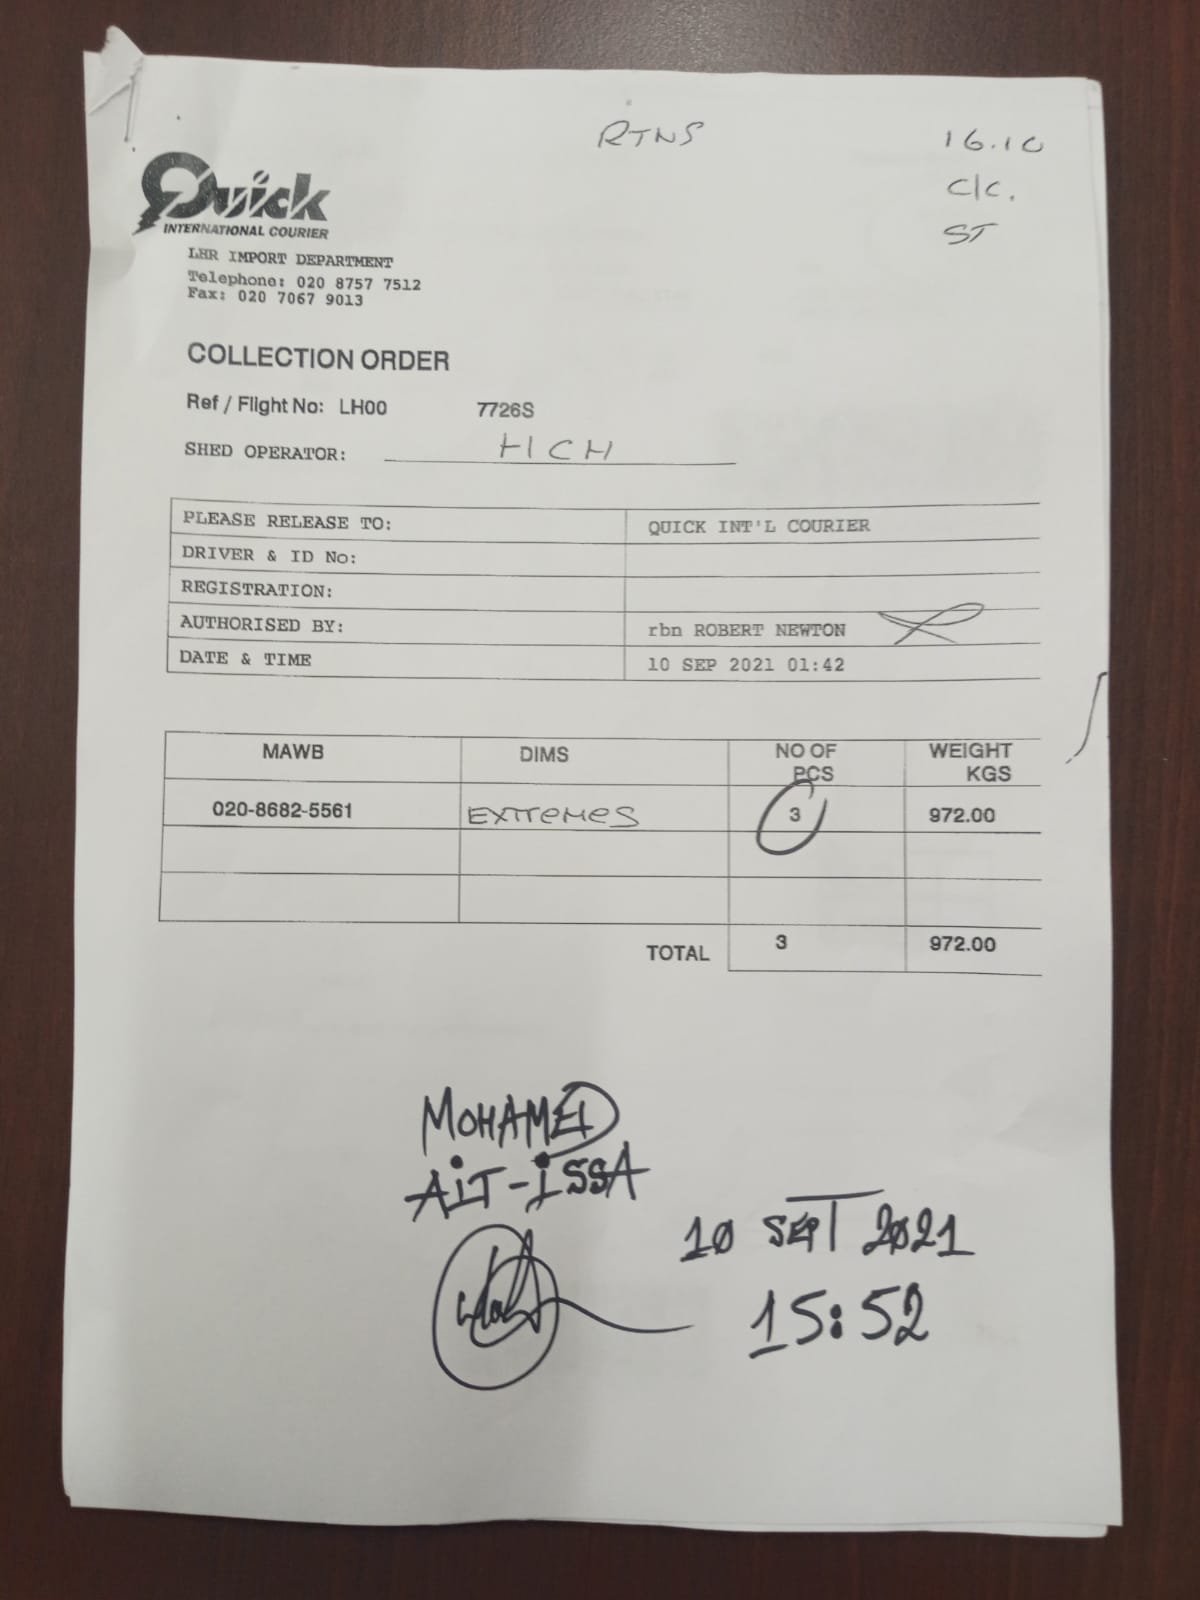 RTNS
16.10
C/C.
ST
Quick
INTERNATIONAL COURIER
LHR IMPORT DEPARTMENT
Telephone: 020 8757 7512
Fax: 020 7067 9013
COLLECTION ORDER
Ref / Flight No: LH00 7726S
SHED OPERATOR: HCH
PLEASE RELEASE TO: QUICK INT'L COURIER
DRIVER & ID No:
REGISTRATION:
AUTHORISED BY: rbn ROBERT NEWTON
DATE & TIME 10 SEP 2021 01:42
MAWB DIMS NO OF PCS WEIGHT KGS
020-8682-5561 EXTREMES 3 972.00
TOTAL 3 972.00
MOHAMED
AIT-ISSA
10 SEPT 2021
15:52